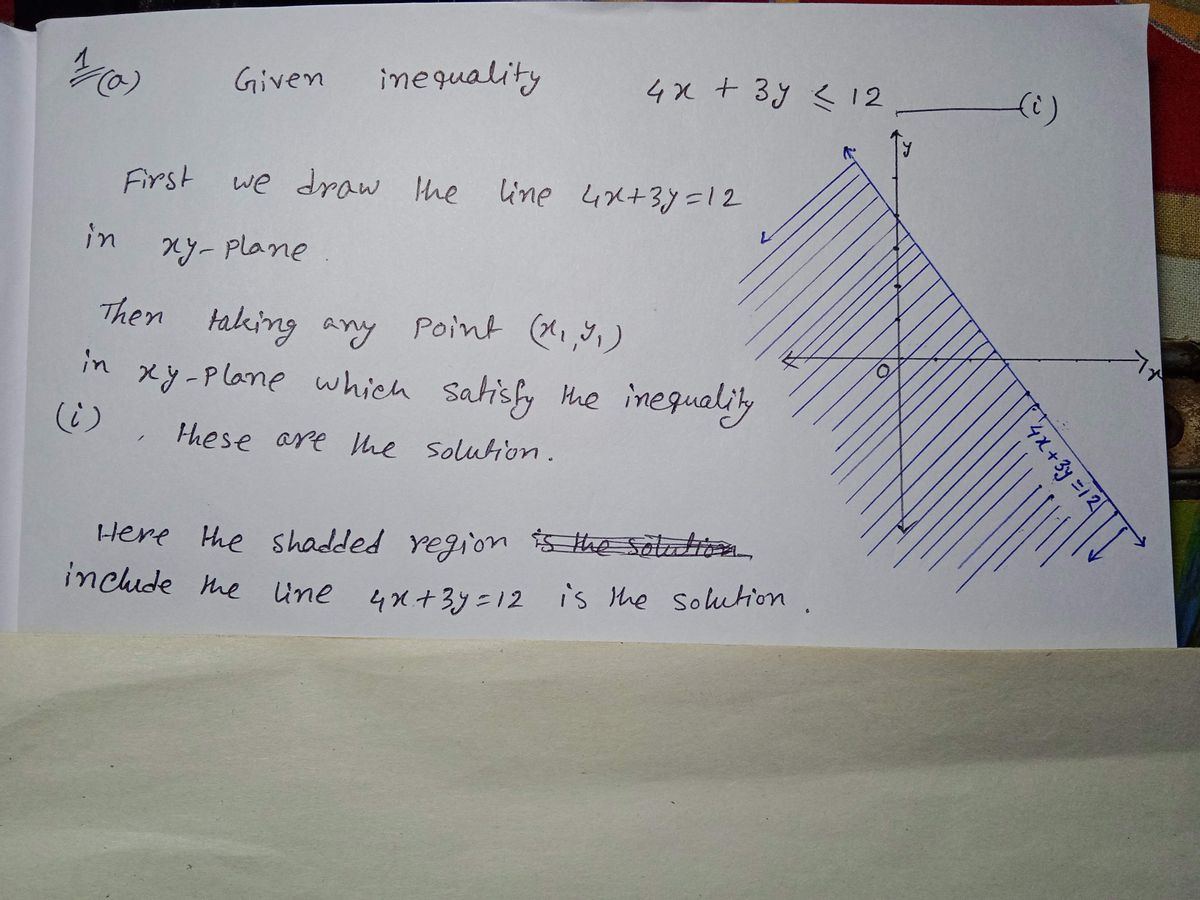 1 (a) Given inequality 4x + 3y ≤ 12 (i)
First we draw the line 4x+3y=12
in xy-plane.
Then taking any point (x₁, y₁)
in xy-plane which satisfy the inequality
(i), these are the solution.
Here the shadded region is the solution
include the line 4x+3y=12 is the solution.
y
x
O
4x+3y=12